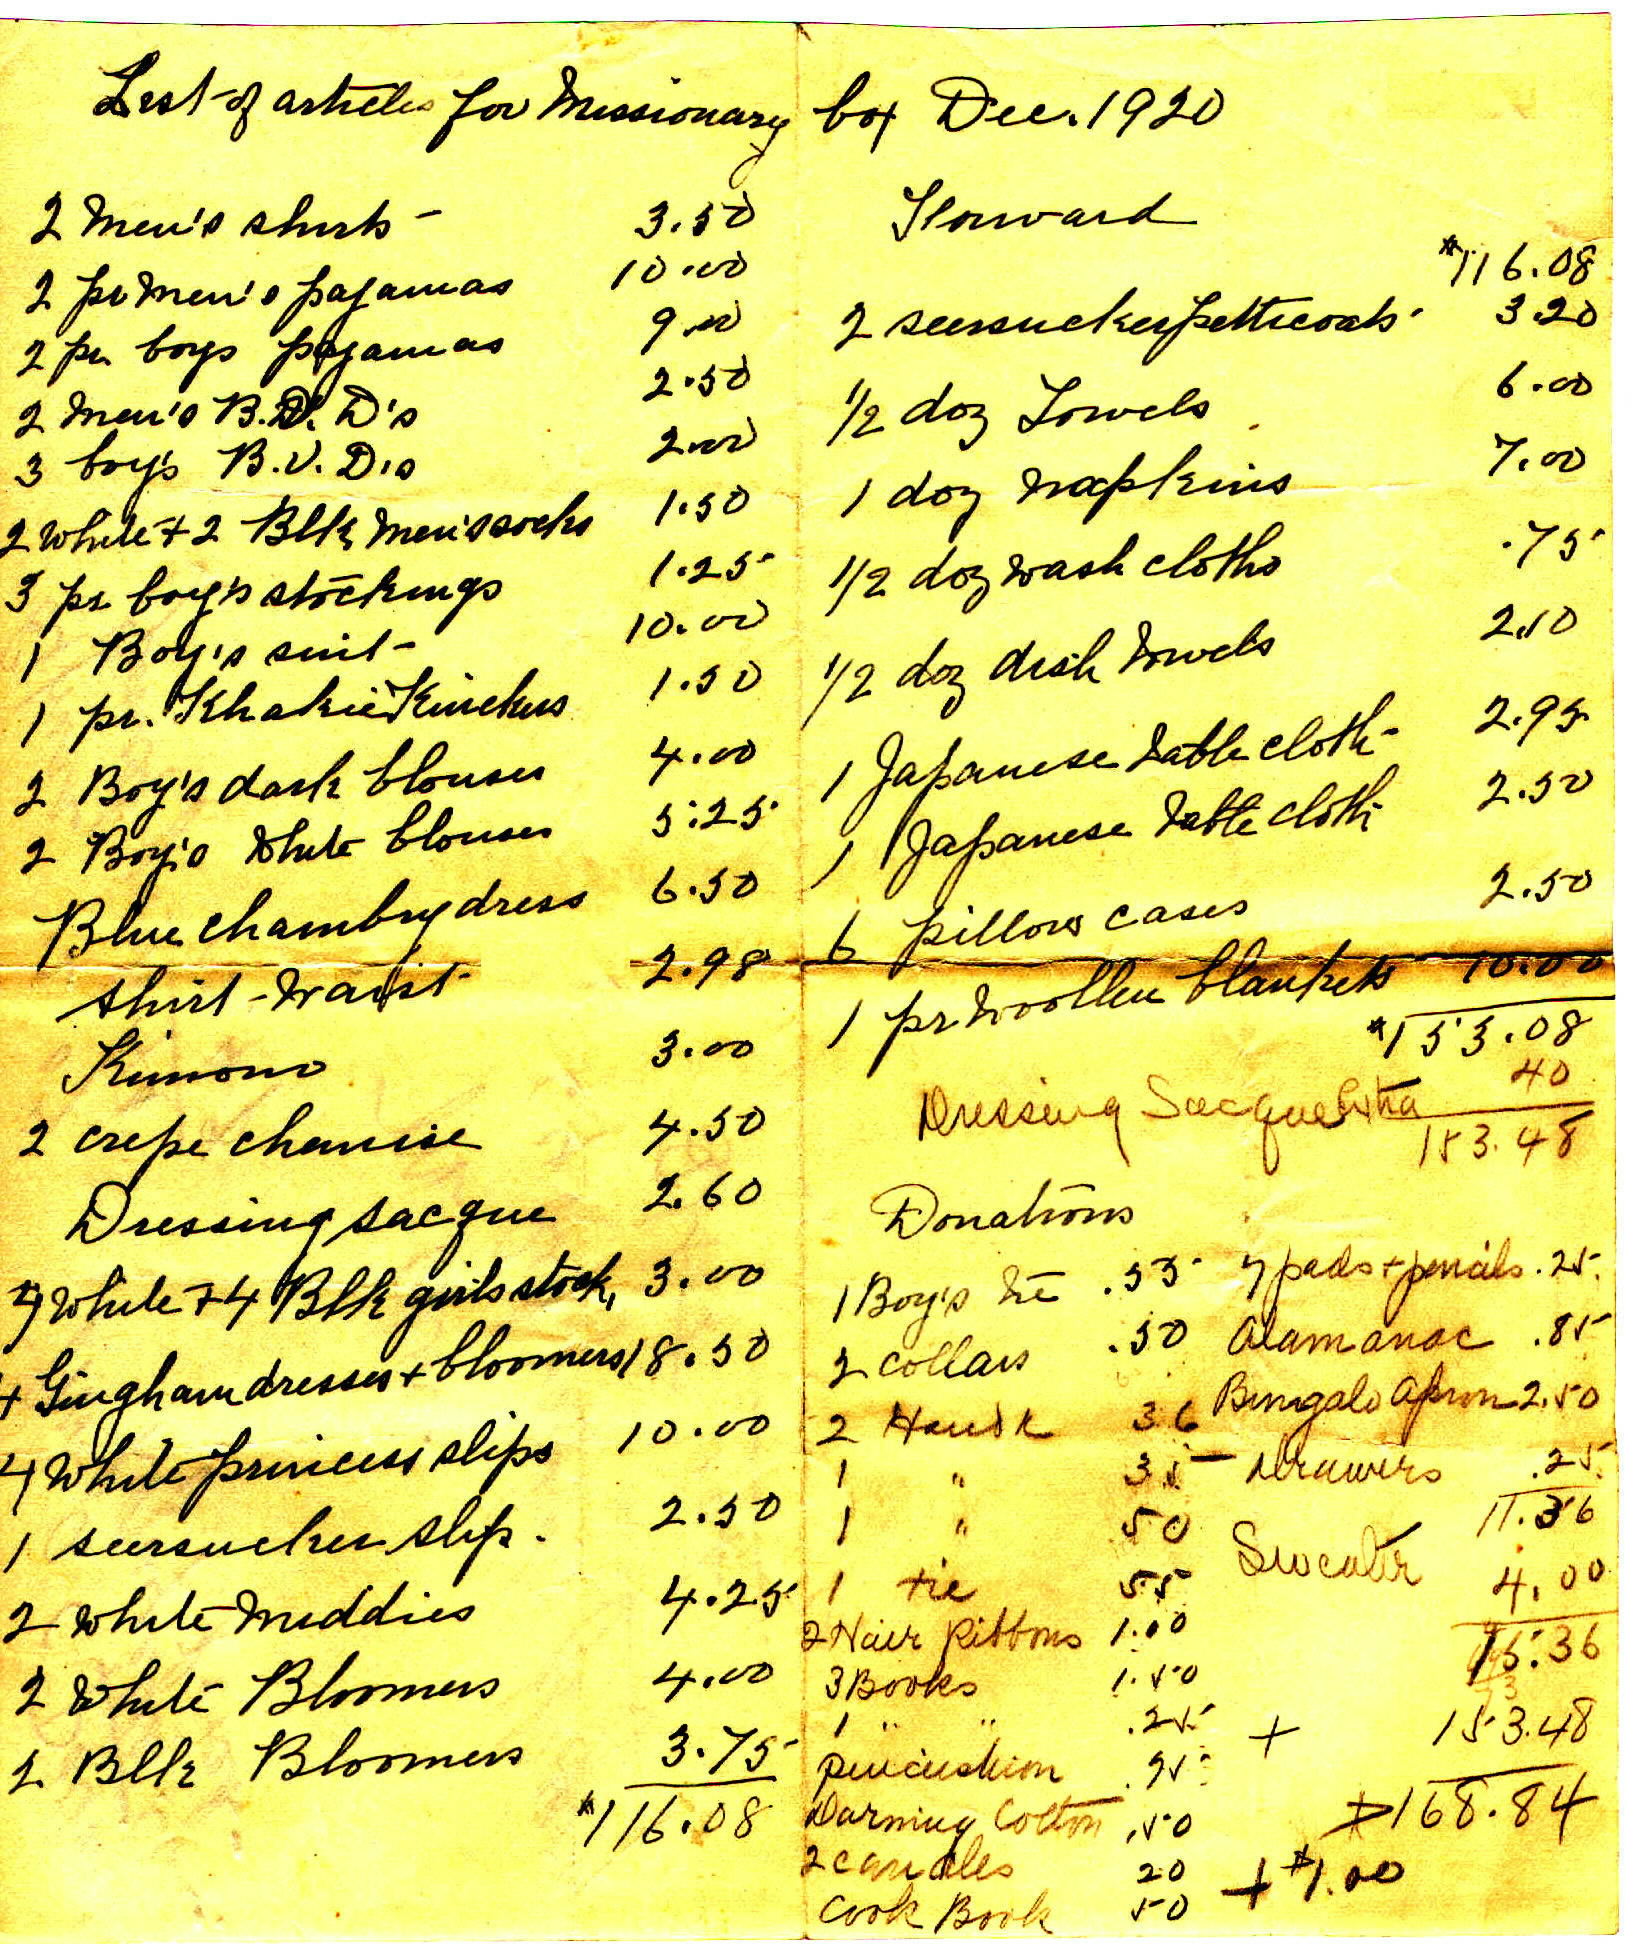 List of articles for Missionary box Dec. 1920
2 Men's shirts - 3.50
2 pr Men's pajamas 10.00
2 pr. boys pajamas 9.00
2 Men's B.V.D's 2.50
3 boy's B.V.D.s 2.00
2 white + 2 Blk men's socks 1.50
3 pr. boy's stockings 1.25
1 Boy's suit - 10.00
1 pr. Khakie Knickers 1.50
2 Boy's dark blouses 4.00
2 Boy's White blouses 5.25
Blue chambry dress 6.50
Shirt-waist 2.98
Kimono 3.00
2 crepe chemise 4.50
Dressing sacque 2.60
4 White + 4 Blk girls stock, 3.00
4 Gingham dresses + bloomers 18.50
4 White princess slips 10.00
1 seersucker slip. 2.50
2 White Middies 4.25
2 White Bloomers 4.00
2 Blk Bloomers 3.75
$116.08
Forward
$116.08
2 seersucker petticoats 3.20
1/2 doz Towels 6.00
1 doz Napkins 7.00
1/2 doz wash cloths .75
1/2 doz dish towels 2.10
1 Japanese table cloth - 2.95
1 Japanese table cloth 2.50
6 pillow cases 2.50
1 pr Woollen blankets 10.00
$153.08
Dressing Sacque Extra 40
153.48
Donations
1 Boy's tie .55
2 collars .50
2 Handk 36
1 " 35
1 " 50
1 tie 55
2 Hair Ribbons 1.00
3 Books 1.50
1 " " .25
pincushion .25
Darning Cotton .50
2 candles 20
Cook Book 50
4 pads + pencils .25
Alamanac .85
Bungalo Apron 2.50
Drawers .25
11.36
Sweater 4.00
15.36
+ 153.48
$168.84
+ $1.00